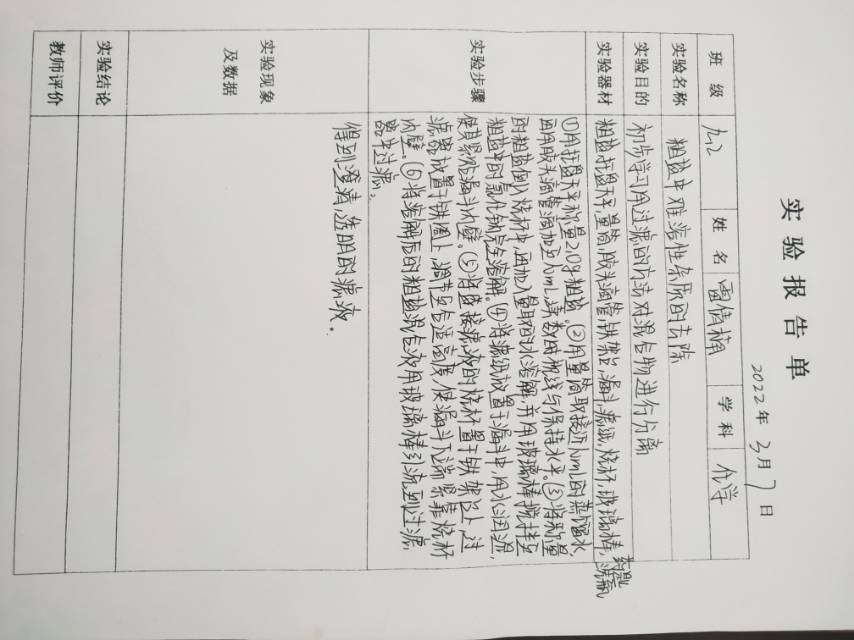 实验报告单
2022年3月7日
班级 九2 姓名 雷倩楠 学科 化学
实验名称 粗盐中难溶性杂质的去除
实验目的 初步学习用过滤的方法对混合物进行分离
实验器材 粗盐,托盘天平,量筒,胶头滴管,铁架台,漏斗,滤纸,烧杯,玻璃棒,药匙,洗瓶
实验步骤
①用托盘天平称量2.0g粗盐。②用量筒取接近10mL的蒸馏水,
再用胶头滴管滴加至10mL,读数时视线与保持水平。③将称量
的粗盐倒入烧杯中,再加入量取的水溶解,并用玻璃棒搅拌至
粗盐中的氯化钠完全溶解。④将滤纸放置于漏斗中,用水润湿,
使其紧贴漏斗内壁。⑤将盛接滤液的烧杯置于铁架台上,过
滤器放置于铁圈上,调节至合适高度,使漏斗下端紧靠烧杯
内壁。⑥将溶解后的粗盐混合液用玻璃棒引流到过滤
器中过滤。
实验现象
及数据
得到澄清透明的滤液。
实验结论
教师评价